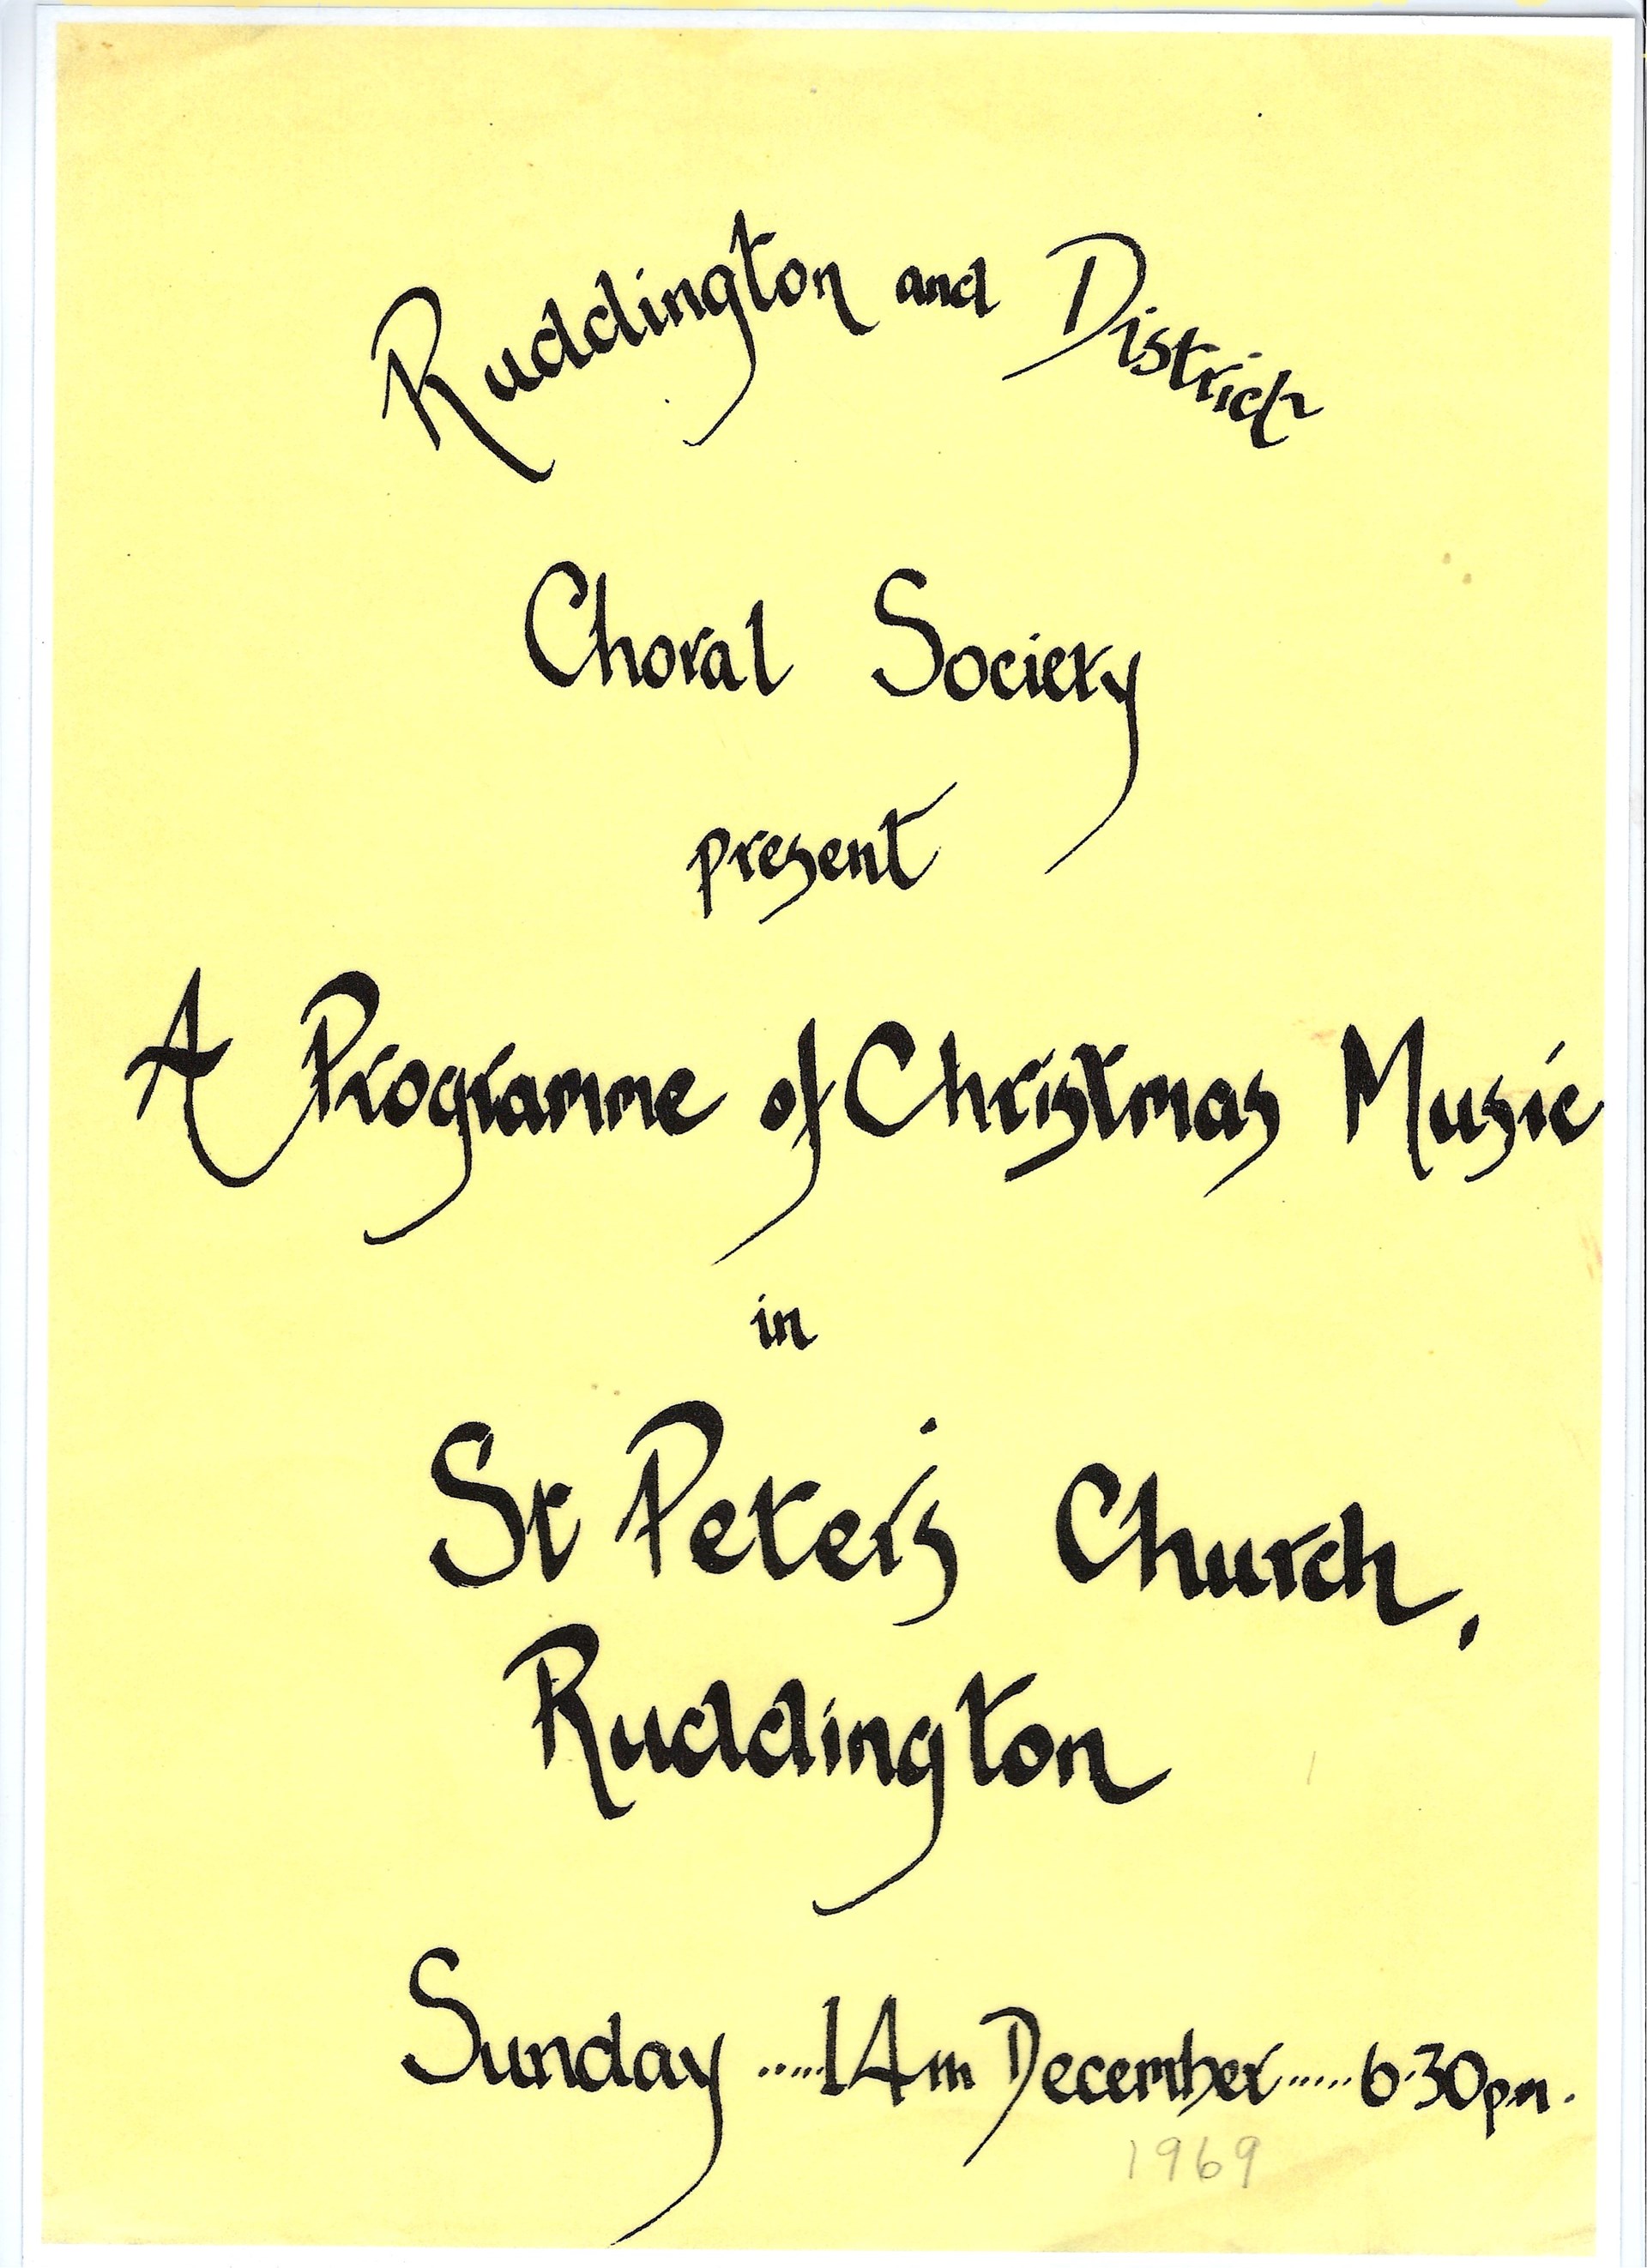 Ruddington and District
Choral Society
present
A Programme of Christmas Music
in
St Peter's Church,
Ruddington
Sunday .....14th December..... 6.30pm.
1969